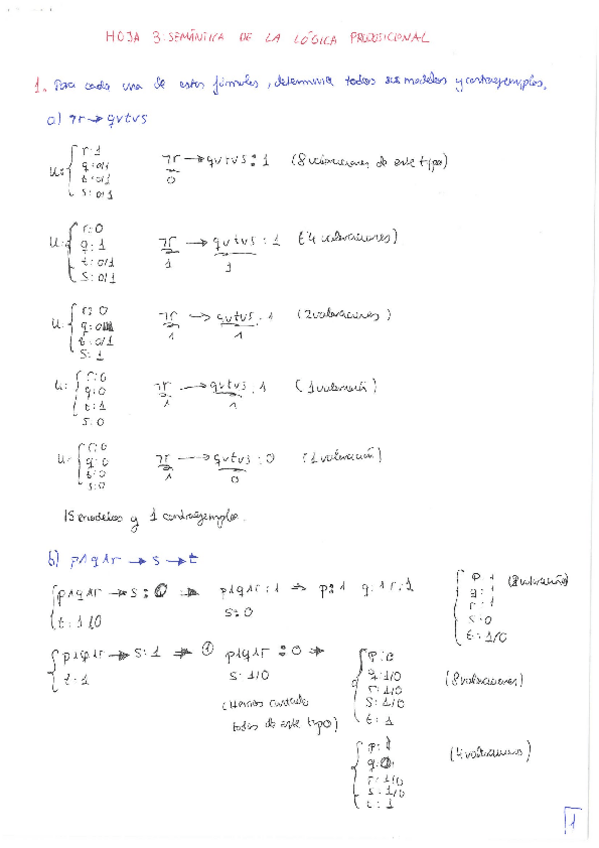 HOJA 3: SEMÁNTICA DE LA LÓGICA PROPOSICIONAL
1. Para cada una de estas fórmulas, determina todos sus modelos y contraejemplos.
a) ¬r → q∨t∨s
U: { r: 1
q: 0/1
t: 0/1
s: 0/1
¬r → q∨t∨s : 1 (8 valoraciones de este tipo)
0
U: { r: 0
q: 1
t: 0/1
s: 0/1
¬r → q∨t∨s : 1 (4 valoraciones)
1 1
U: { r: 0
q: 0
t: 0/1
s: 1
¬r → q∨t∨s : 1 (2 valoraciones)
1 1
U: { r: 0
q: 0
t: 1
s: 0
¬r → q∨t∨s : 1 (1 valoración)
1 1
U: { r: 0
q: 0
t: 0
s: 0
¬r → q∨t∨s : 0 (1 valoración)
1 0
15 modelos y 1 contraejemplo.
b) p∧q∧r → s → t
{ p∧q∧r → s : 0 ⇒ p∧q∧r : 1 ⇒ p: 1 q: 1 r: 1
t: 1/0 s: 0
{ p: 1
q: 1
r: 1
s: 0
t: 1/0
(2 valoraciones)
{ p∧q∧r → s : 1 ⇒ ① p∧q∧r : 0 ⇒
t: 1 s: 1/0
(Hemos contado
todas de este tipo)
{ p: 0
q: 1/0
r: 1/0
s: 1/0
t: 1
(8 valoraciones)
{ p: 1
q: 0
r: 1/0
s: 1/0
t: 1
(4 valoraciones)
1